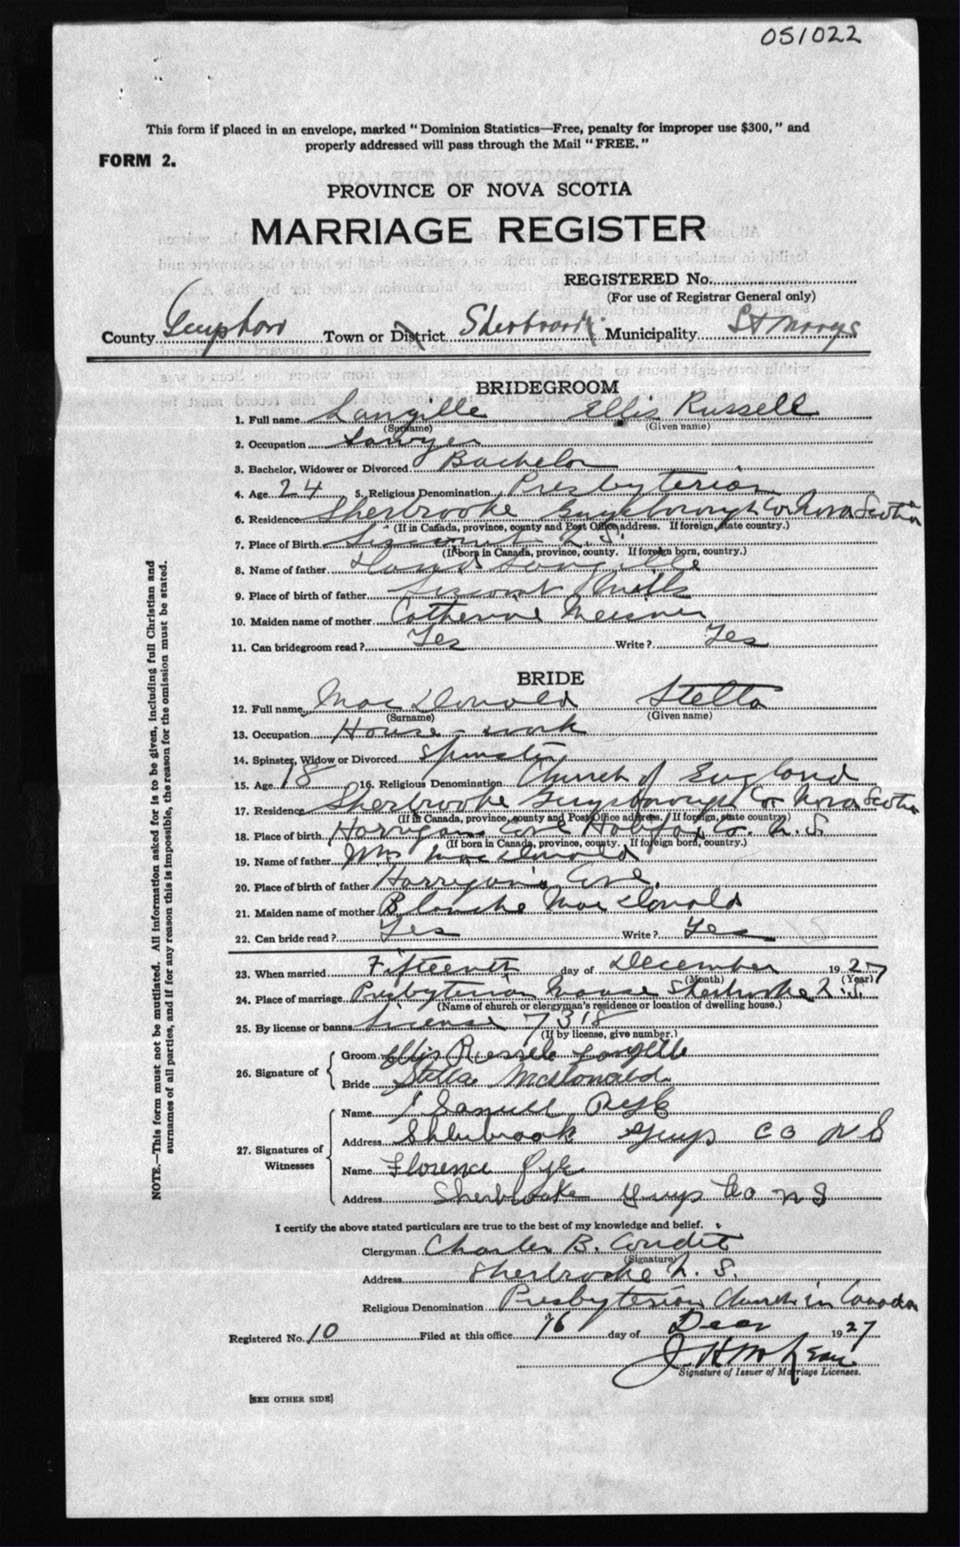 051022
This form if placed in an envelope, marked "Dominion Statistics—Free, penalty for improper use $300," and
properly addressed will pass through the Mail "FREE."
FORM 2.
PROVINCE OF NOVA SCOTIA
MARRIAGE REGISTER
REGISTERED No.
(For use of Registrar General only)
County Town or District Sherbrooke Municipality St Marys
BRIDEGROOM
1. Full name Langille Ellis Russell
(Surname) (Given name)
2. Occupation Sawyer
3. Bachelor, Widower or Divorced Bachelor
4. Age 24 5. Religious Denomination Presbyterian
6. Residence Sherbrooke Guysborough Co Nova Scotia
(If in Canada, province, county and Post Office address. If foreign, state country.)
7. Place of Birth Liscomb N.S.
(If born in Canada, province, county. If foreign born, country.)
8. Name of father Langille
9. Place of birth of father Liscomb Mills
10. Maiden name of mother Catherine Meisner
11. Can bridegroom read? Yes Write? Yes
BRIDE
12. Full name MacDonald Stella
(Surname) (Given name)
13. Occupation House-work
14. Spinster, Widow or Divorced Spinster
15. Age 18 16. Religious Denomination Church of England
17. Residence Sherbrooke Guysborough Co Nova Scotia
(If in Canada, province, county and Post Office address. If foreign, state country)
18. Place of birth Harrigans Cove Halifax Co. N.S.
(If born in Canada, province, county. If foreign born, country.)
19. Name of father Wm MacDonald
20. Place of birth of father Harrigan's Cove.
21. Maiden name of mother Blanche MacDonald
22. Can bride read? Yes Write? Yes
23. When married Fifteenth day of December 1927
(Month) (Year)
24. Place of marriage Presbyterian Manse Sherbrooke N.S.
(Name of church or clergyman's residence or location of dwelling house.)
25. By license or banns License 7318
(If by license, give number.)
26. Signature of Groom Ellis Russell Langille
Bride Stella McDonald
27. Signatures of Witnesses Name Samuel Pye
Address Sherbrook Guys Co N S
Name Florence Pye
Address Sherbrooke Guys Co N S
I certify the above stated particulars are true to the best of my knowledge and belief.
Clergyman Charles B. Condit
(Signature)
Address Sherbrooke N.S.
Religious Denomination Presbyterian Church in Canada
Registered No. 10 Filed at this office 16 day of Decr 1927
Signature of Issuer of Marriage Licenses.
[SEE OTHER SIDE]
NOTE.—This form must not be mutilated. All information asked for is to be given, including full Christian and
surnames of all parties, and if for any reason this is impossible, the reason for the omission must be stated.